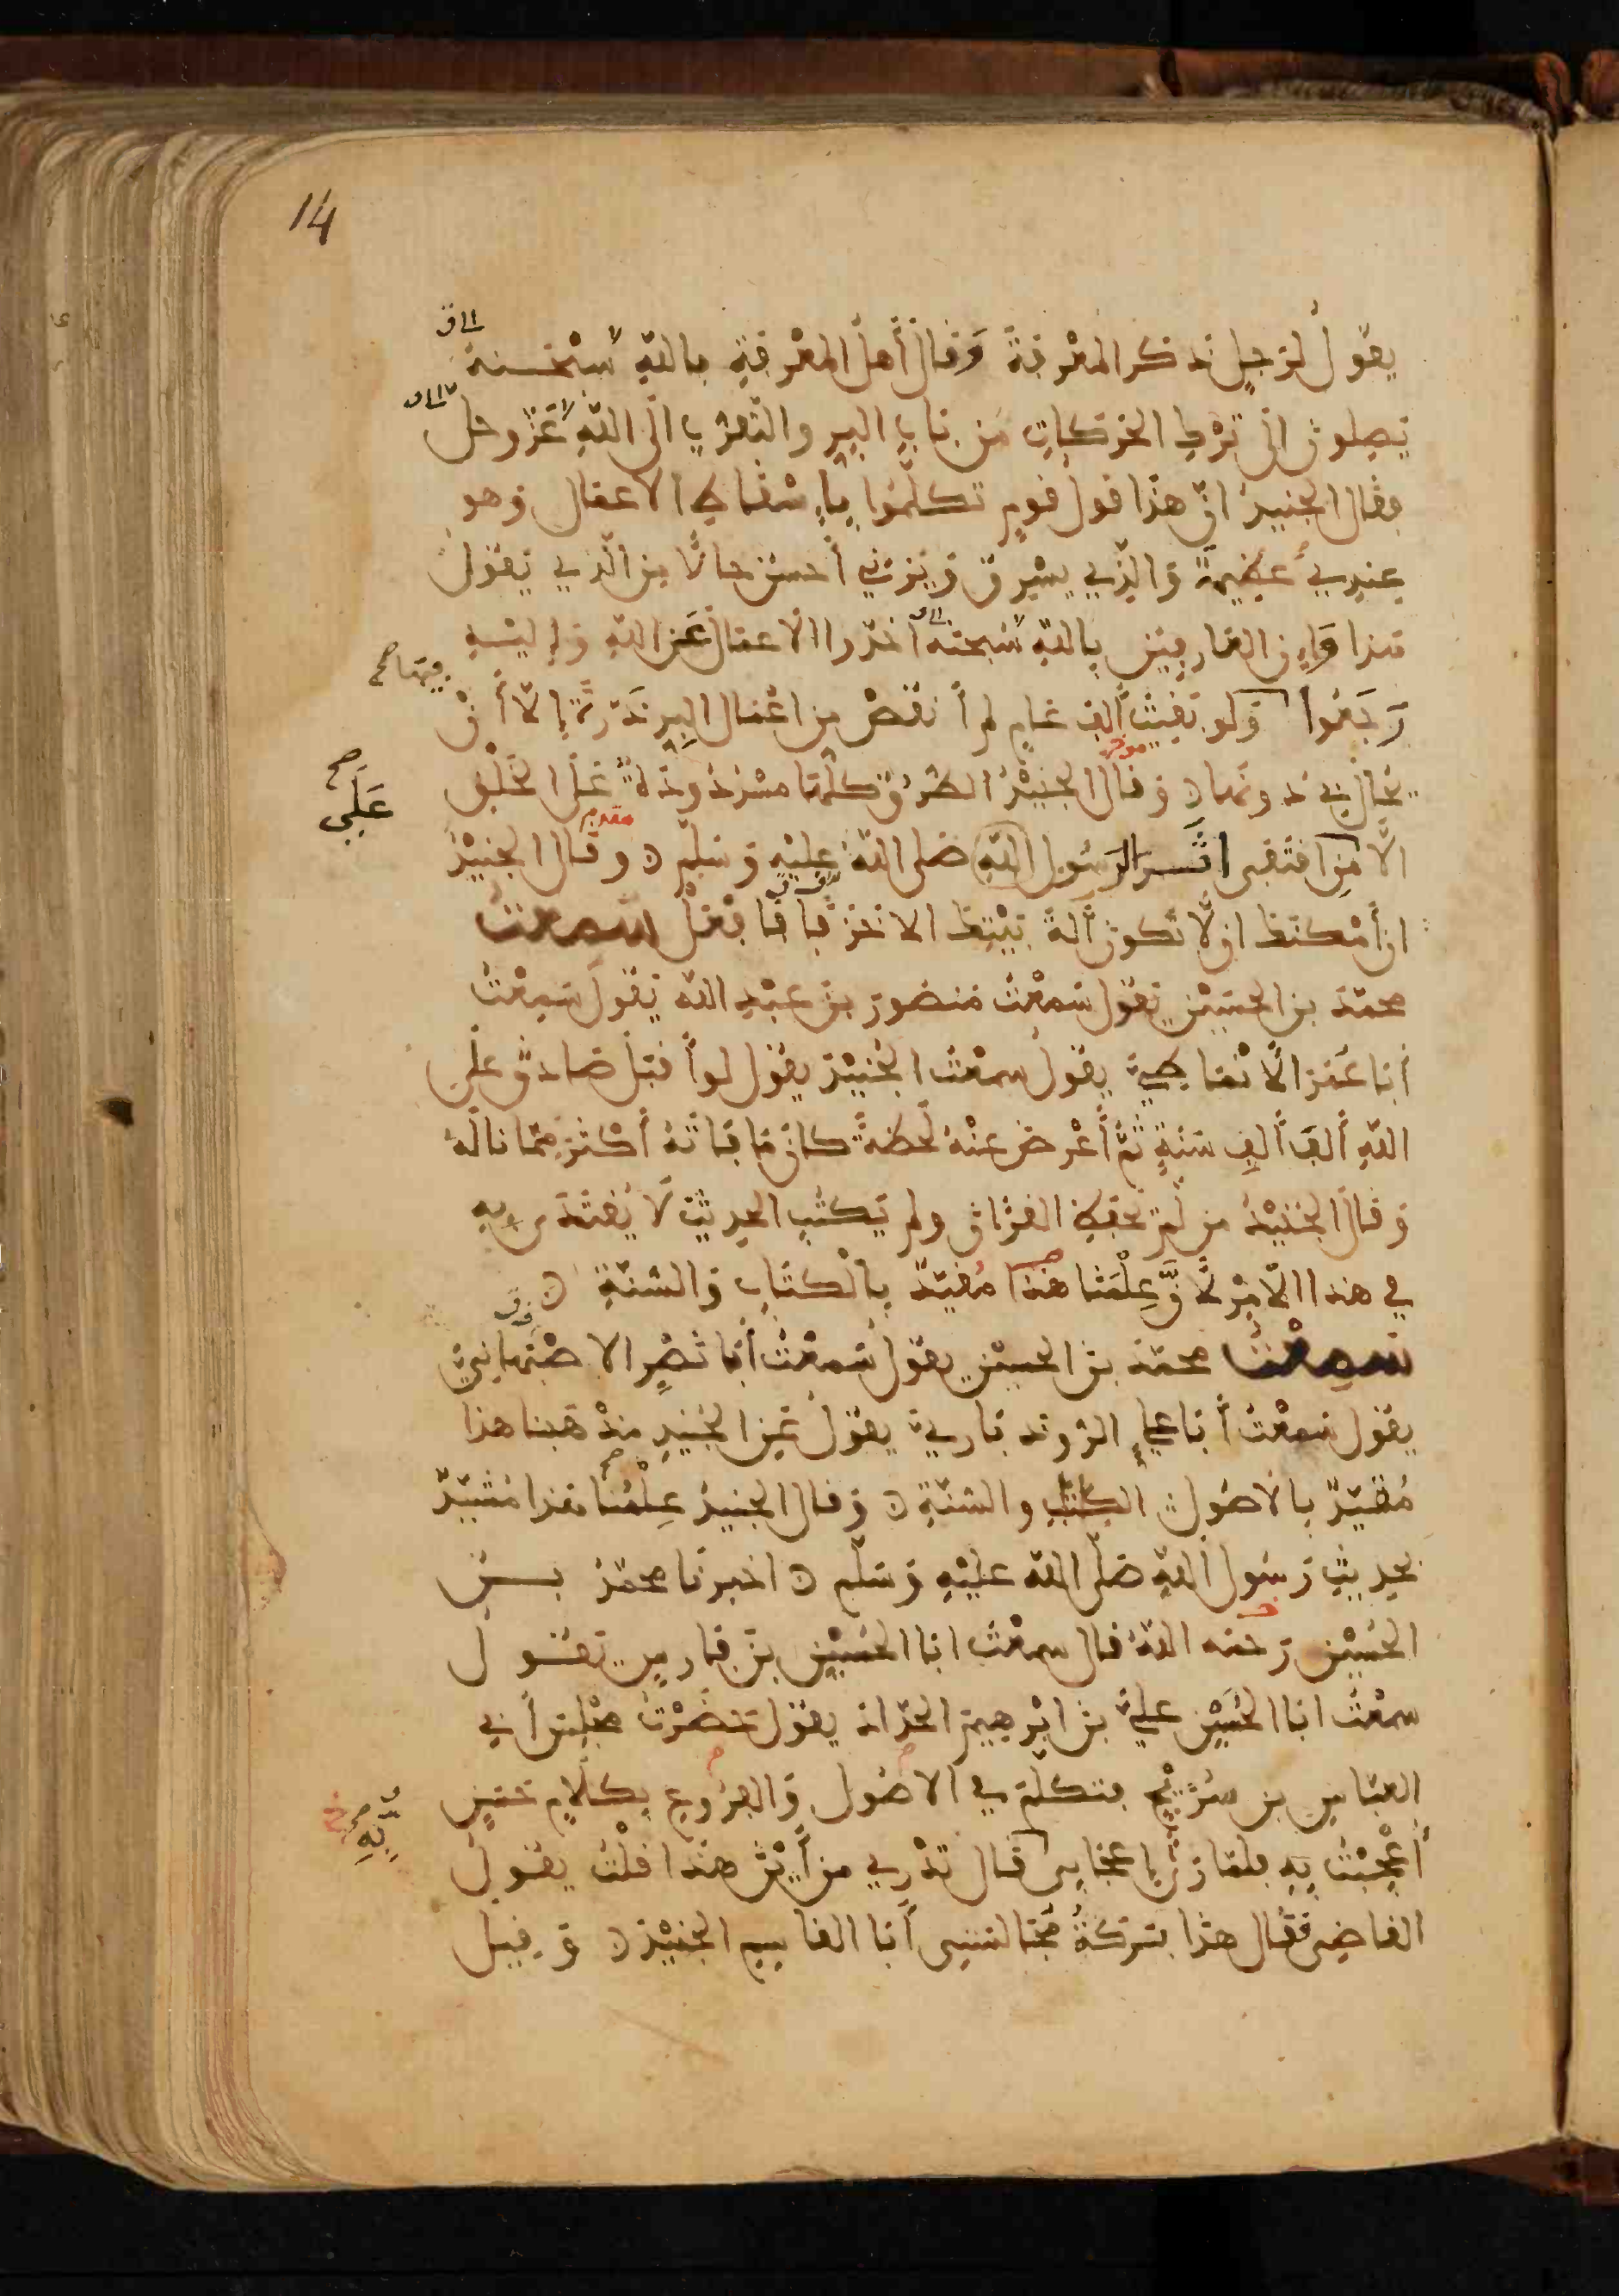 14
يقول لرجل ذكر المعرفة وقال أهل المعرفة بالله سبحنه
يصلون الى ترك الحركات من باب البر والتقرب الى الله عز وجل
فقال الجنيد ان هذا قول قوم تكلموا بإسقاط الاعمال وهو
عندي عظيمة والذي يسرق ويزني أحسن حالا من الذي يقول
هذا وإن العارفين بالله سبحنه أخذوا الاعمال عن الله وإليه
رجعوا ولو بقيت ألف عام لم أنقص من اعمال البر ذرة إلا أن
يحال بي دونها وقال الجنيد الطرق كلها مسدودة على الخلق
الا من اقتفى اثر الرسول الله صلى الله عليه وسلم وقال الجنيد
ان أمكنك ان لا تكون آلة بيتك الا خزفا فافعل سمعت
محمد بن الحسين يقول سمعت منصور بن عبد الله يقول سمعت
أبا عمر الانماطي يقول سمعت الجنيد يقول لو أقبل صادق على
الله ألف ألف سنة ثم أعرض عنه لحظة كان ما فاته أكثر مما ناله
وقال الجنيد من لم يحفظ القران ولم يكتب الحديث لا يقتدى به
في هذا الأمر لأن علمنا هذا مقيد بالكتاب والسنة
سمعت محمد بن الحسين يقول سمعت أبا نصر الاصبهاني
يقول سمعت أبا علي الروذباري يقول عن الجنيد مذهبنا هذا
مقيد بالاصول الكتب والسنة وقال الجنيد علمنا هذا مشيد
بحديث رسول الله صلى الله عليه وسلم اخبرنا محمد بن
الحسين رحمه الله قال سمعت ابا الحسين بن فارس يقول
سمعت ابا الحسين علي بن ابرهيم الحداد يقول حضرت مجلس أبي
العباس بن سريج فتكلم في الاصول والفروع بكلام حسن
أعجبت به فلما رأى إعجابي قال تدري من أين هذا قلت يقول
القاضي فقال هذا ببركة مجالستي أبا القاسم الجنيد وقيل
فيها صح
صح
على
به